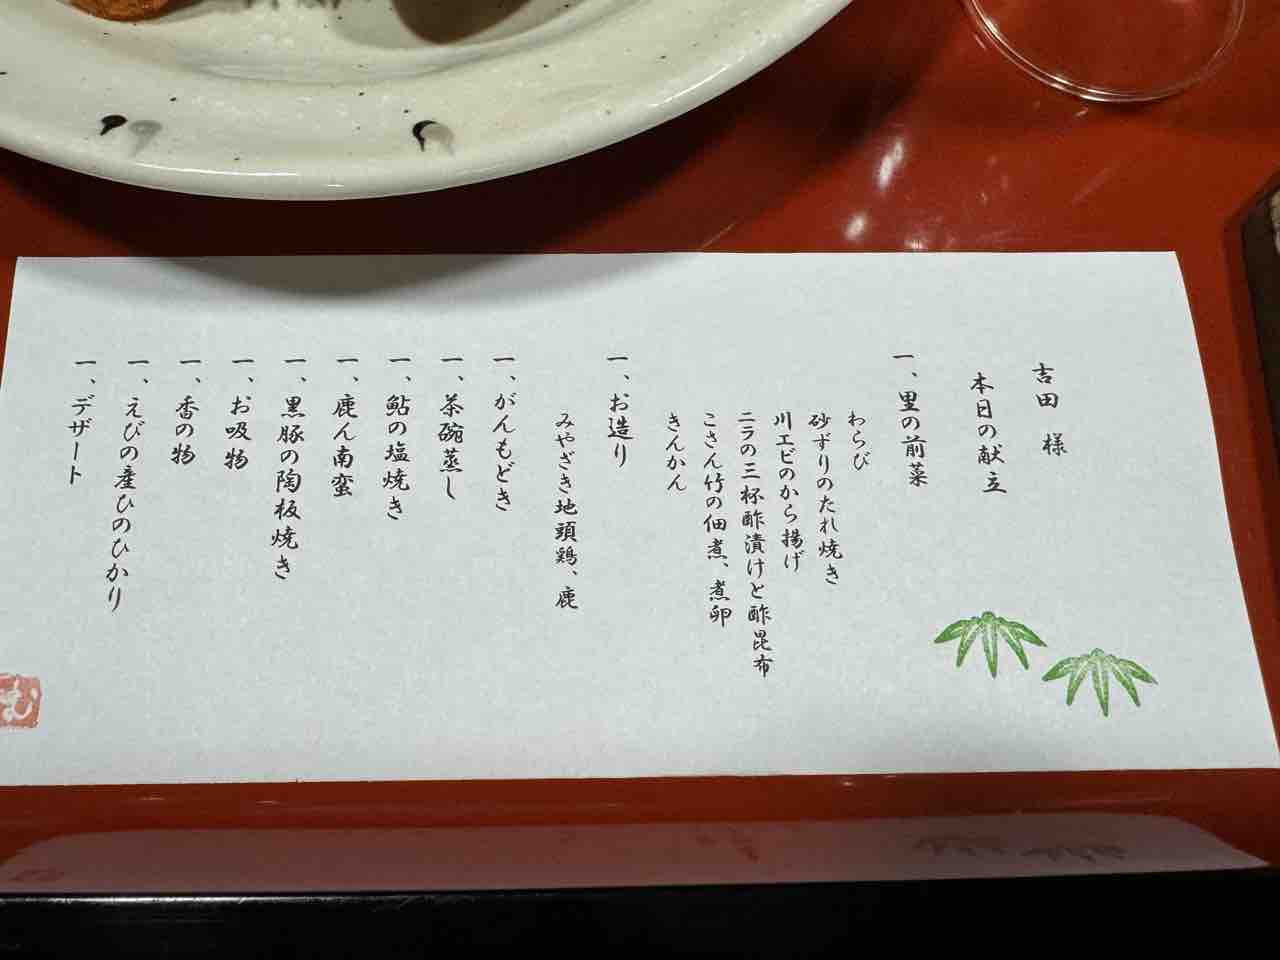 吉田 様
本日の献立
一、里の前菜
わらび
砂ずりのたれ焼き
川エビのから揚げ
ニラの三杯酢漬けと酢昆布
こさん竹の佃煮、煮卵
きんかん
一、お造り
みやざき地頭鶏、鹿
一、がんもどき
一、茶碗蒸し
一、鮎の塩焼き
一、鹿ん南蛮
一、黒豚の陶板焼き
一、お吸物
一、香の物
一、えびの産ひのひかり
一、デザート
む